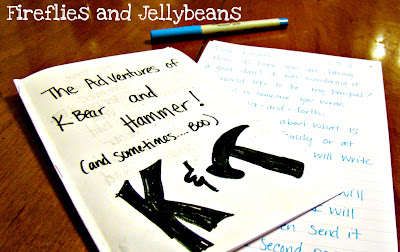 Fireflies and Jellybeans
The Adventures of
K Bear and
Hammer!
(and sometimes....Boo)
K &
I hope you are having
day! I was wondering if
would like to be my pen-pal?
is someone you write
and-forth.
about what is
or at
will write
will
I will
send it
second